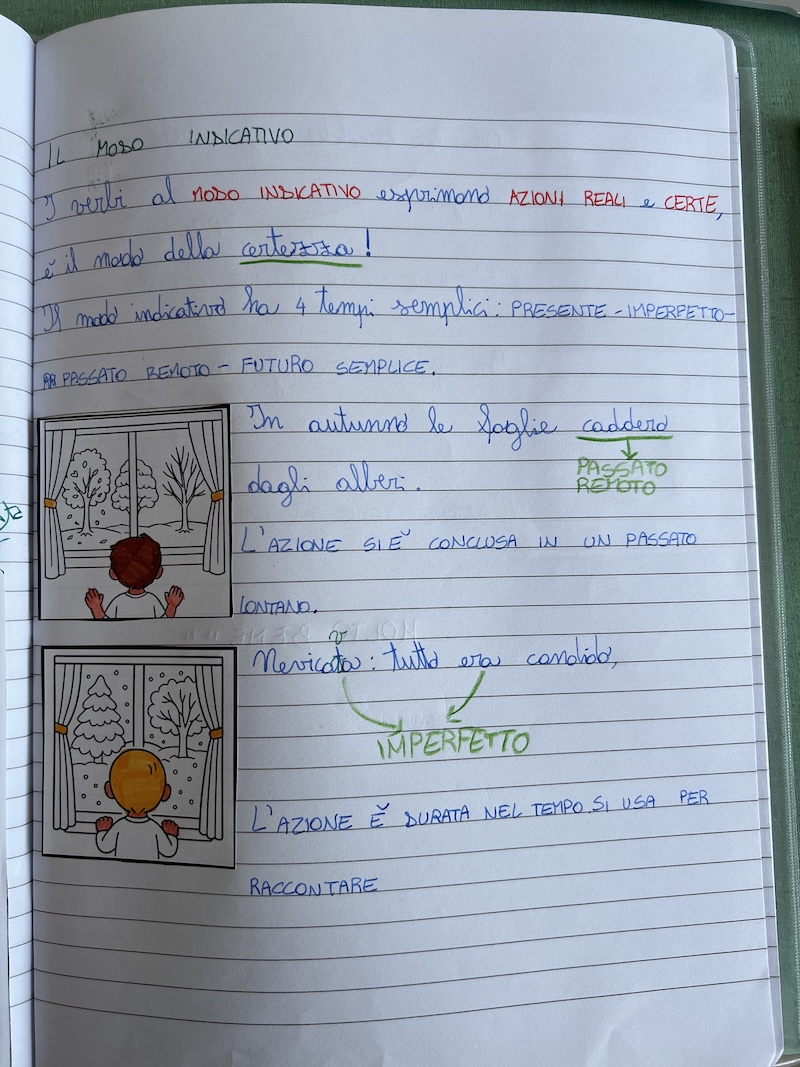 IL MODO INDICATIVO
I verbi al MODO INDICATIVO esprimono AZIONI REALI e CERTE,
è il modo della certezza!
Il modo indicativo ha 4 tempi semplici: PRESENTE - IMPERFETTO -
PASSATO REMOTO - FUTURO SEMPLICE.
In autunno le foglie caddero
PASSATO
REMOTO
dagli alberi.
L'AZIONE SI È CONCLUSA IN UN PASSATO
LONTANO.
Nevicava: tutto era candido,
IMPERFETTO
L'AZIONE È DURATA NEL TEMPO. SI USA PER
RACCONTARE